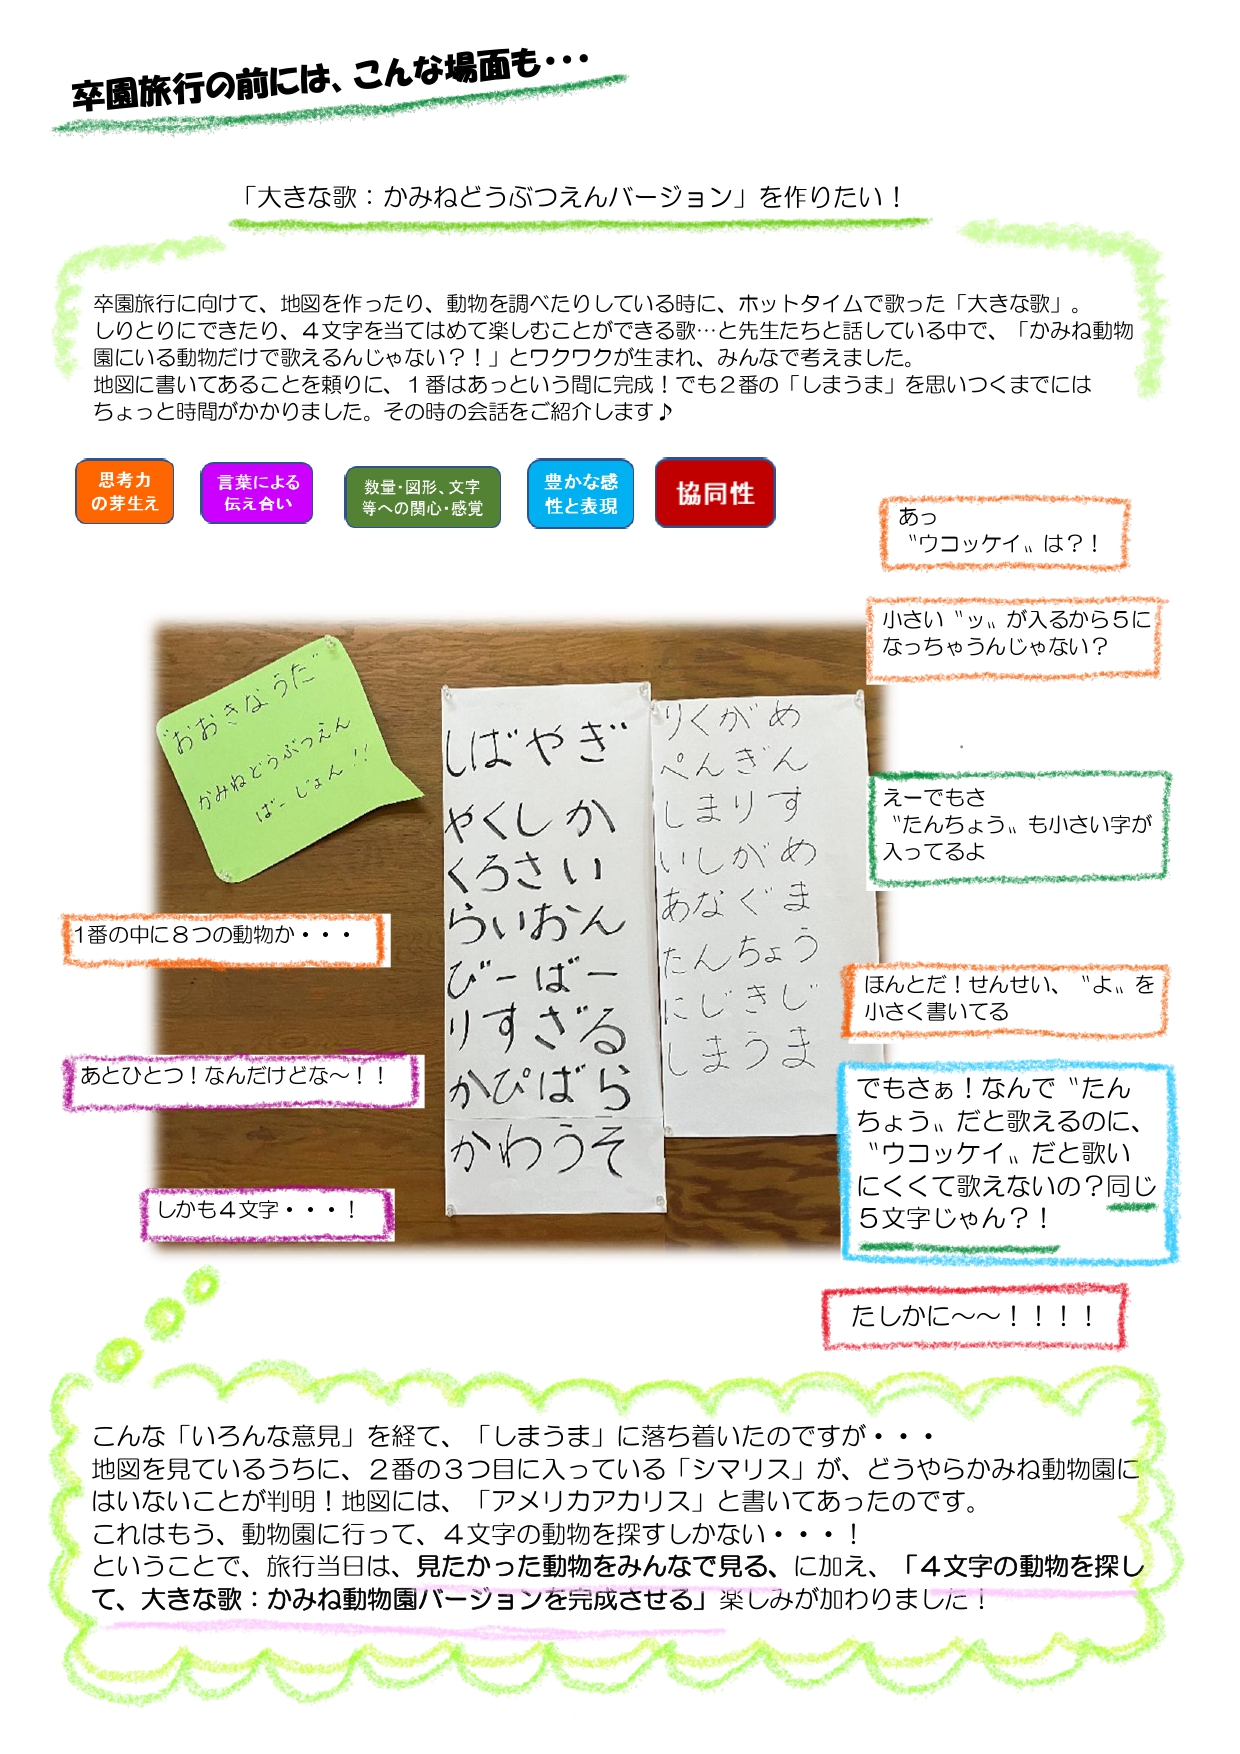 卒園旅行の前には、こんな場面も・・・
「大きな歌：かみねどうぶつえんバージョン」を作りたい！
卒園旅行に向けて、地図を作ったり、動物を調べたりしている時に、ホットタイムで歌った「大きな歌」。
しりとりにできたり、４文字を当てはめて楽しむことができる歌…と先生たちと話している中で、「かみね動物
園にいる動物だけで歌えるんじゃない？！」とワクワクが生まれ、みんなで考えました。
地図に書いてあることを頼りに、１番はあっという間に完成！でも２番の「しまうま」を思いつくまでには
ちょっと時間がかかりました。その時の会話をご紹介します♪
思考力
の芽生え
言葉による
伝え合い
数量・図形、文字
等への関心・感覚
豊かな感
性と表現
協同性
あっ
〝ウコッケイ〟は？！
小さい〝ッ〟が入るから５に
なっちゃうんじゃない？
えーでもさ
〝たんちょう〟も小さい字が
入ってるよ
ほんとだ！せんせい、〝よ〟を
小さく書いてる
でもさぁ！なんで〝たん
ちょう〟だと歌えるのに、
〝ウコッケイ〟だと歌い
にくくて歌えないの？同じ
５文字じゃん？！
たしかに〜〜！！！！
"おおきなうた"
かみねどうぶつえん
ばーじょん!!
しばやぎ
やくしか
くろさい
らいおん
びーばー
りすざる
かぴばら
かわうそ
りくがめ
ぺんぎん
しまりす
いしがめ
あなぐま
たんちょう
にじきじ
しまうま
1番の中に８つの動物か・・・
あとひとつ！なんだけどな〜！！
しかも４文字・・・！
こんな「いろんな意見」を経て、「しまうま」に落ち着いたのですが・・・
地図を見ているうちに、２番の３つ目に入っている「シマリス」が、どうやらかみね動物園に
はいないことが判明！地図には、「アメリカアカリス」と書いてあったのです。
これはもう、動物園に行って、４文字の動物を探すしかない・・・！
ということで、旅行当日は、見たかった動物をみんなで見る、に加え、「４文字の動物を探し
て、大きな歌：かみね動物園バージョンを完成させる」楽しみが加わりました！